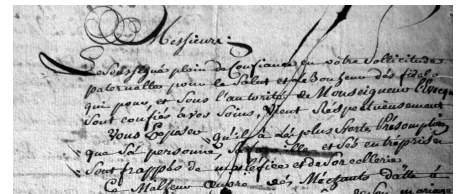 Messieurs:
Le Soussigné plein de Confiance en votre Sollicitude
paternelle pour le Salut et le Bonheur des fidel
qui pour, et Sous l'autorité de Monseigneur
Sont confiés à vos Soins, Vient Respectueusement
Vous Exposer qu'il a La plus forte Présomption
que Sa personne, et Ses entreprises
Sont frappés de maléfice et de Sorcellerie
Ce Malheur des Méchants datte